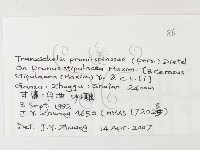 86
Tranzschelia pruni-spinosae (Pers.) Dietel
On Prunus stipulacea Maxim. [≡ Cerasus
stipulacea (Maxim) Yü & C.L.Li]
Gansu: Zhugqu: Shatan 2400m
甘肃: 舟曲 沙滩
3 Sept. 1992
J.Y. Zhuang
Det. J.Y. Zhuang 14 Apr. 2007